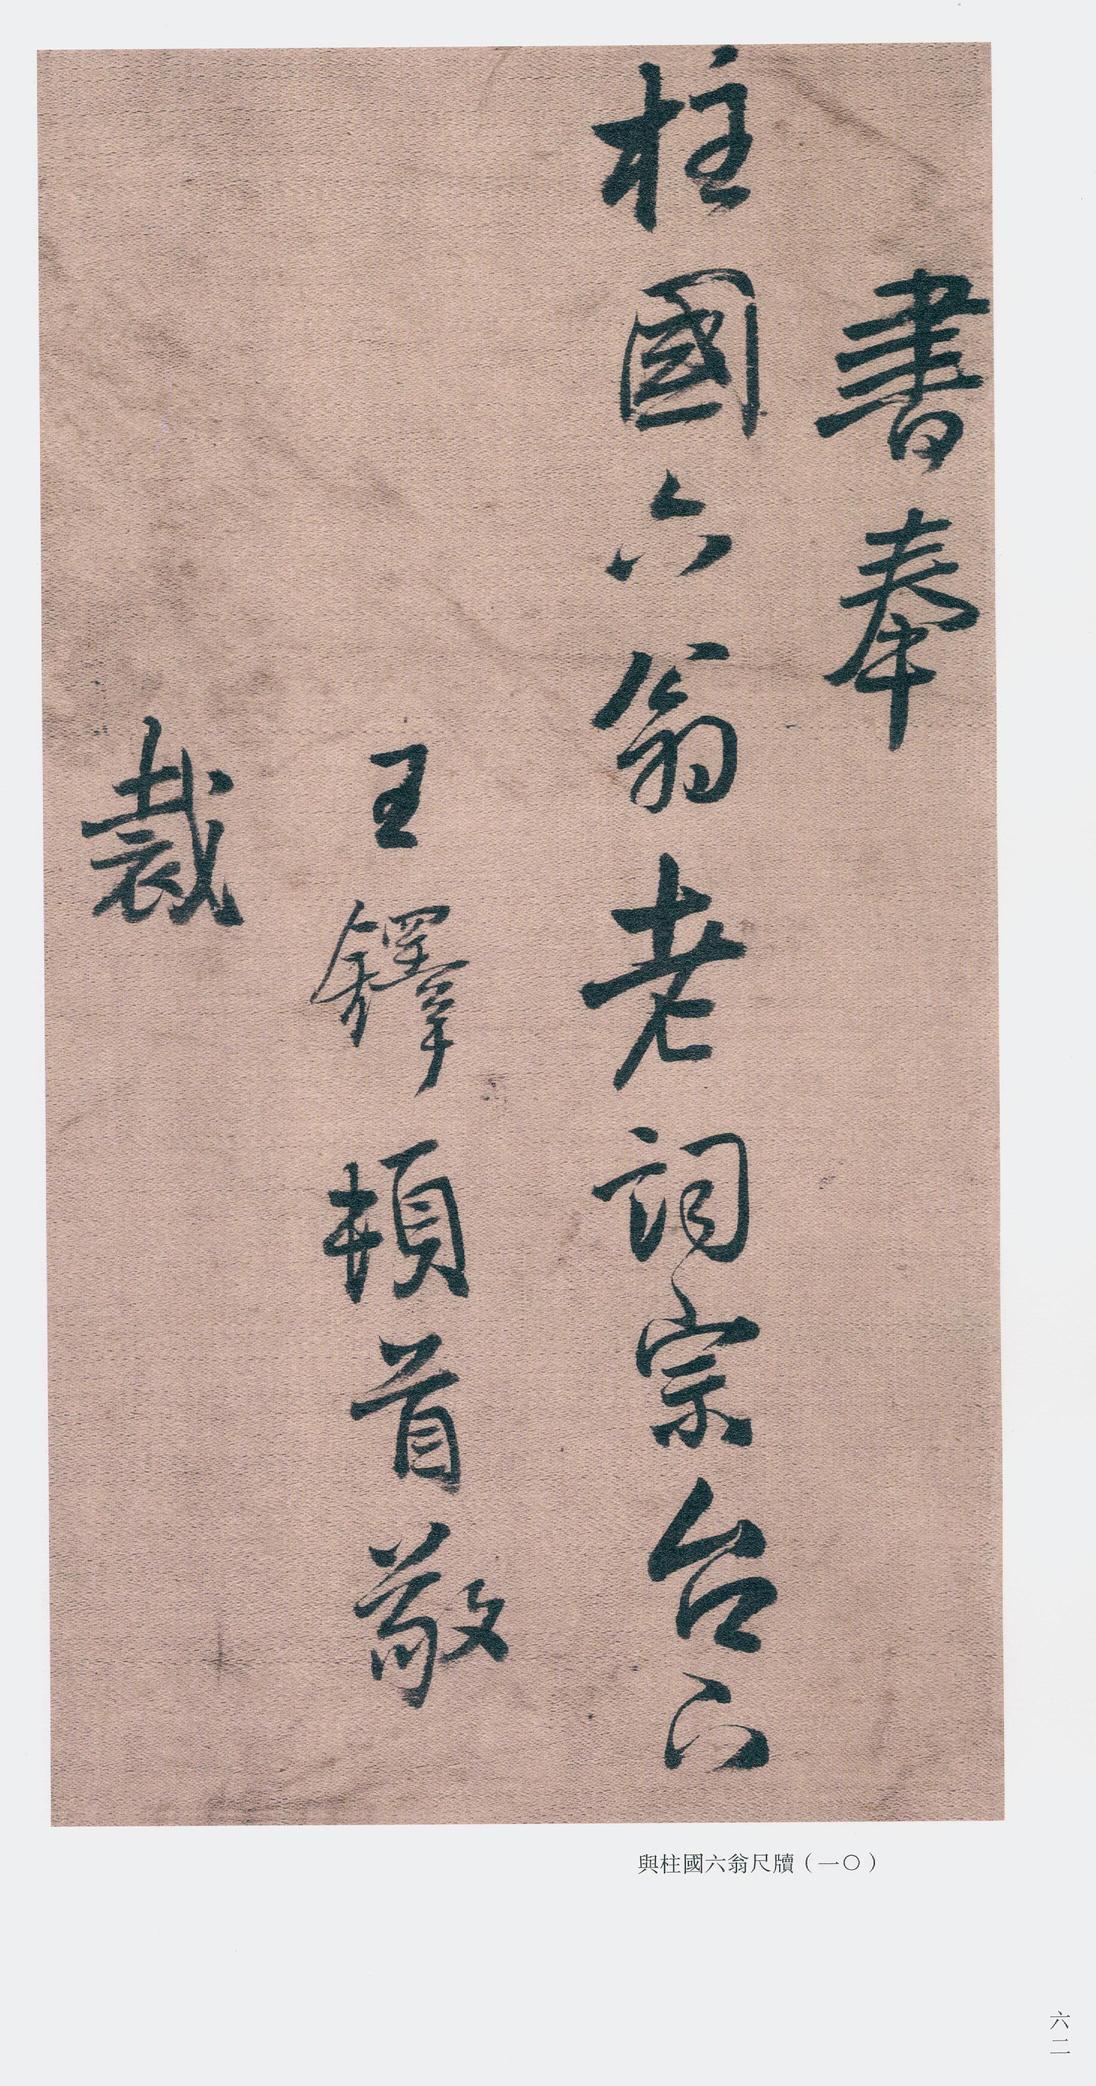 書奉
柱國六翁老詞宗台下
王鐸頓首敬
裁
與柱國六翁尺牘（一〇）
六二